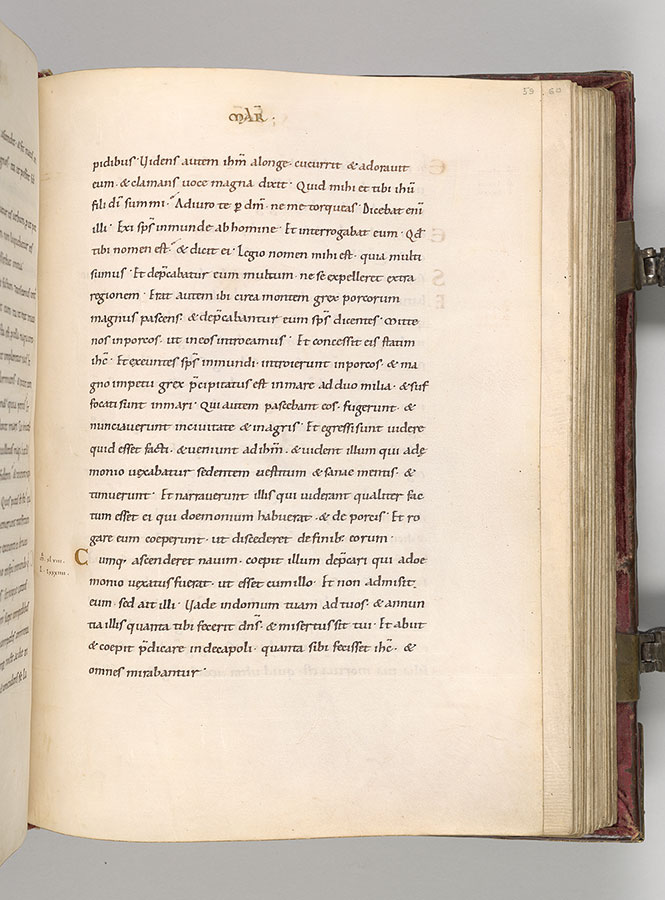 59 60
MAR̄ .
pidibus · Videns autem ihm̄ alonge · cucurrit & adorauit
eum · & clamans uoce magna dixit · Quid mihi et tibi ihū
fili dī summi · Adiuro te ꝑ dm̄ · ne me torqueas · Dicebat enī
illi · Exi sp̄s inmunde ab homine · Et interrogabat eum · Qd̄
tibi nomen est · & dicit ei · Legio nomen mihi est · quia multi
sumus · Et dep̄cabatur eum multum · ne se expelleret extra
regionem · Erat autem ibi circa montem grex porcorum
magnus pascens · & dep̄cabantur eum sp̄s dicentes · Mitte
nos inporcos · ut ineos introeamus · Et concessit eis statim
ihc̄ · Et exeuntes sp̄s inmundi · introierunt inporcos · & ma
gno impetu grex p̄cipitatus est inmare ad duo milia · & suf
focati sunt inmari · Qui autem pascebant eos · fugerunt · &
nunciauerunt inciuitate & inagris · Et egressi sunt uidere
quid esset facti · & ueniunt ad ihm̄ · & uident illum qui adę
monio uexabatur sedentem uestitum & sanae mentis · &
timuerunt · Et narrauerunt illis qui uiderant qualiter fac
tum esset ei qui doemonium habuerat · & de porcis · Et ro
gare eum coeperunt · ut discederet definib; eorum ·
Cumq; ascenderet nauim · coepit illum dep̄cari qui adoe
monio uexatus fuerat · ut esset cum illo · Et non admisit
eum · sed ait illi · Vade indomum tuam ad tuos · & annun
tia illis quanta tibi fecerit dn̄s · & misertus sit tui · Et abiit
& coepit p̄dicare indecapoli · quanta sibi fecisset ihc̄ · &
omnes mirabantur ·